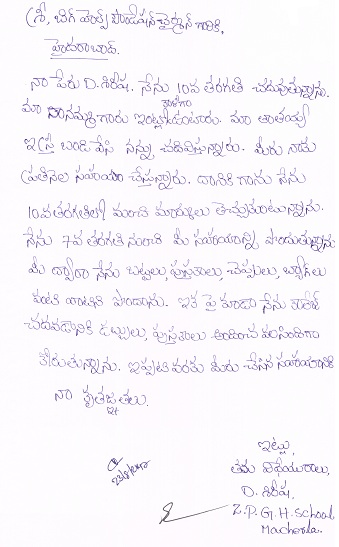 శ్రీ, బిగ్ హెల్ప్ ఫౌండేషన్ చైర్మన్ గారికి,
హైదరాబాద్.
నా పేరు D. శిరీష. నేను 10వ తరగతి చదువుతున్నాను.
మా నానమ్మగారు ఇంట్లో ఉంటారు. మా తాతయ్య
ఇస్త్రీ బండి వేసి నన్ను చదివిస్తున్నారు. మీరు నాకు
ప్రతినెల సహాయం చేస్తున్నారు. దానికి గాను నేను
10వ తరగతిలో మంచి మార్కులు తెచ్చుకుంటున్నాను.
నేను 7వ తరగతి నుంచి మీ సహాయాన్ని పొందుతున్నాను
మీ ద్వారా నేను బట్టలు, పుస్తకాలు, చెప్పులు, బ్యాగ్‌లు
వంటి వాటిని పొందాను. ఇక పై కూడా నేను కాలేజి
చదవడానికి డబ్బులు, పుస్తకాలు అందించ వలసిందిగా
కోరుతున్నాను. ఇప్పటి వరకు మీరు చేసిన సహాయానికి
నా కృతజ్ఞతలు.
ఇట్లు,
తమ విధేయురాలు,
D. శిరీష,
Z.P.G.H. School
Macherla.